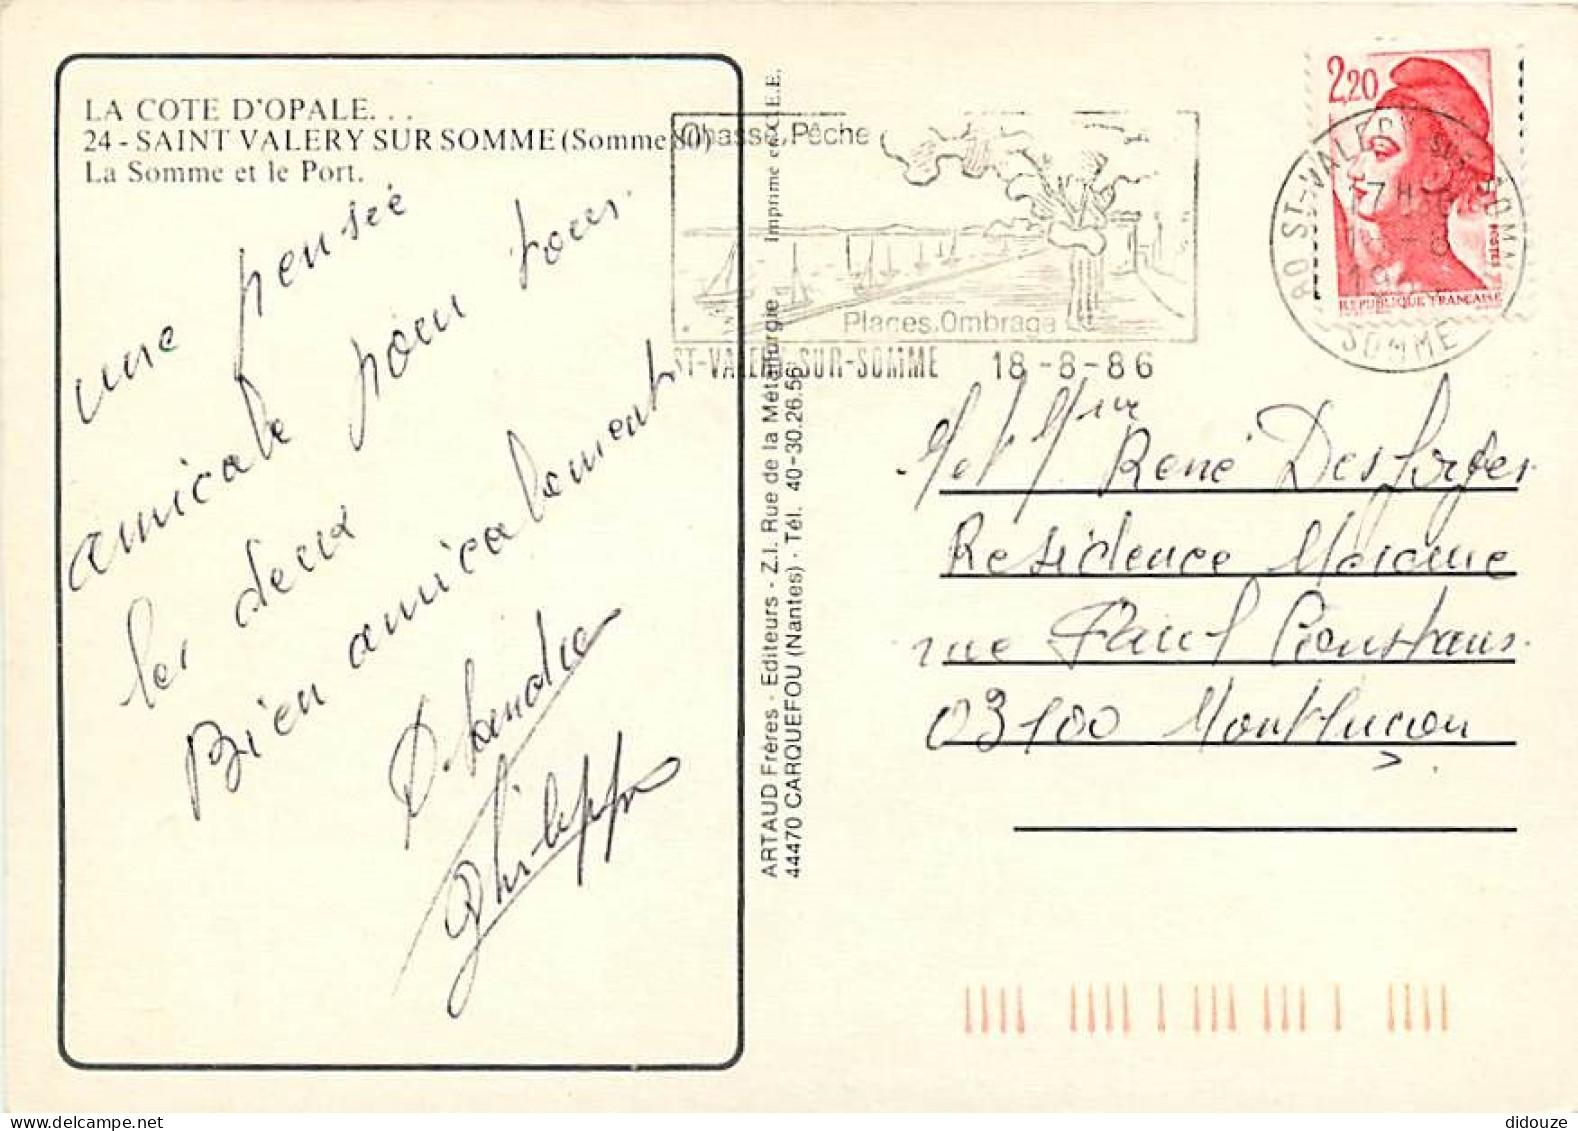 LA COTE D'OPALE...
24 - SAINT VALERY SUR SOMME (Somme 80)
La Somme et le Port.
une pensée
amicale pour tous
les deux
Bien amicalement
Philippe
Imprimé en C.E.E.
ARTAUD Frères - Editeurs - Z.I. Rue de la Métallurgie
44470 CARQUEFOU (Nantes) - Tél. 40-30.26.56
Chasse, Pêche
Plages. Ombrage
ST-VALERY-SUR-SOMME 18-8-86
2,20
REPUBLIQUE FRANÇAISE
80 ST-VALERY SUR SOMME
17 H
SOMME
M et Mme René Desforges
Residence
rue Paul Constans
03100 Montluçon
didouze